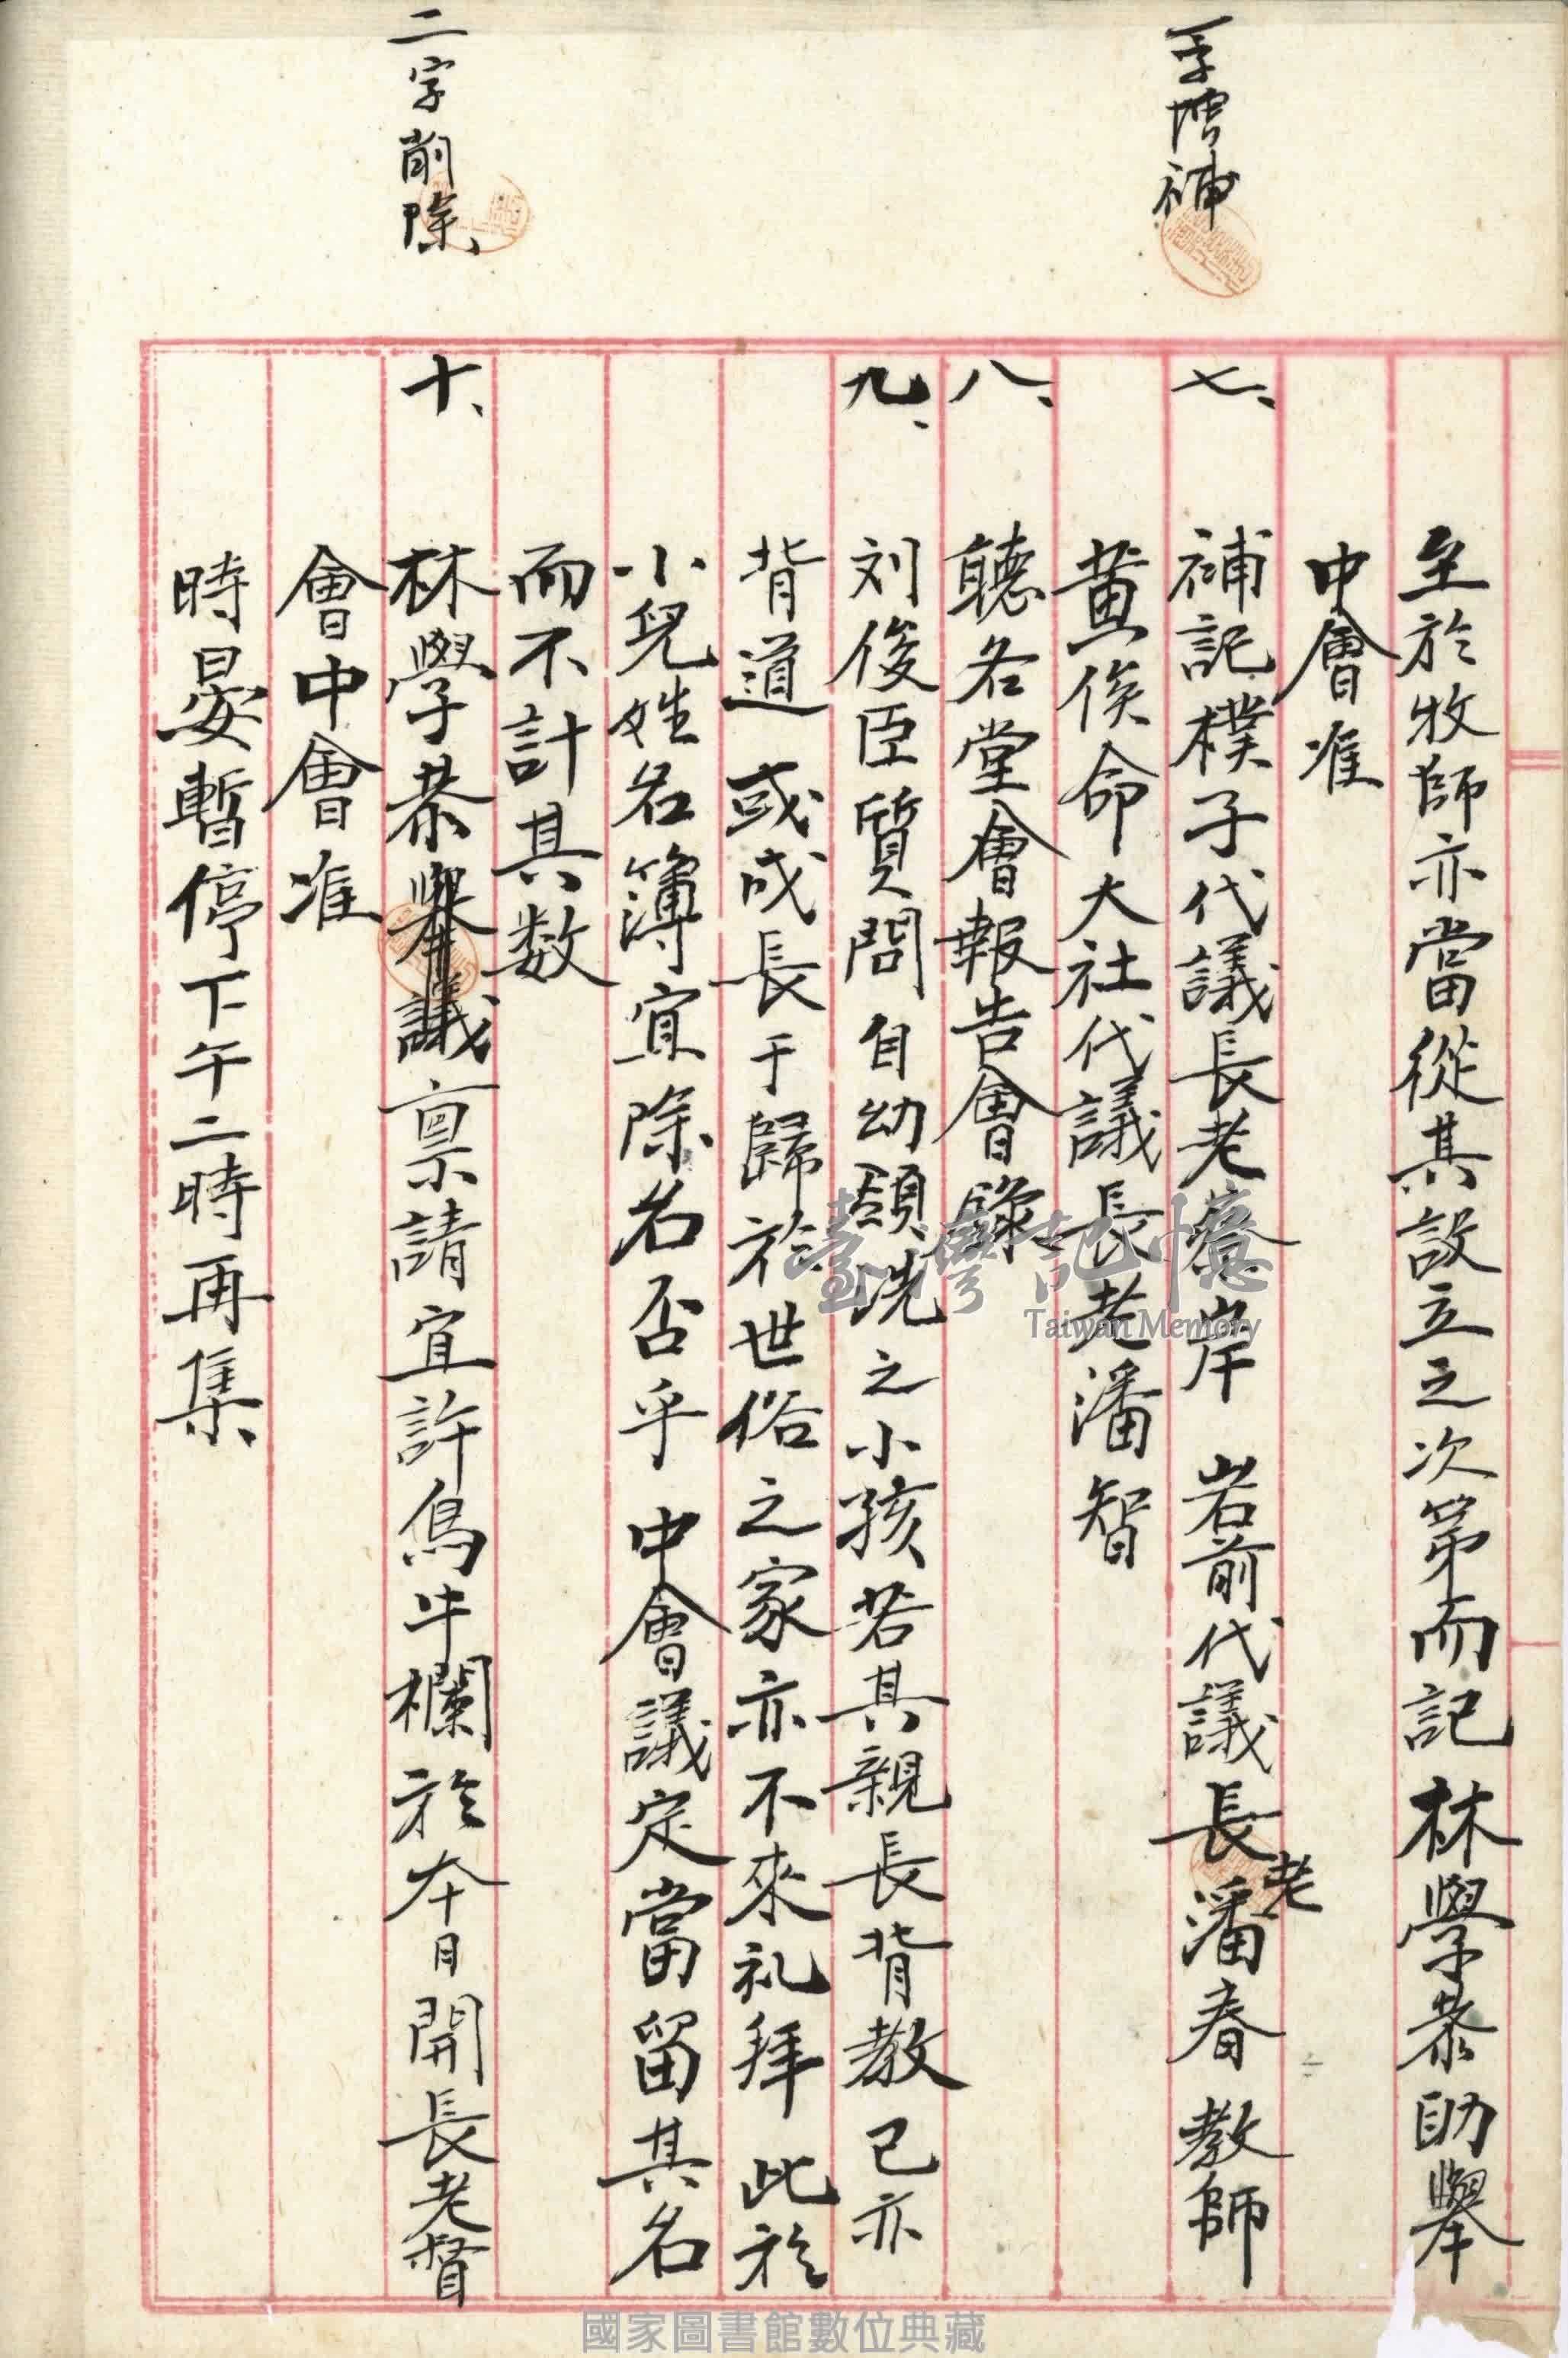 一字增補
至於牧師亦當從其設立之次第而記 林學恭助舉
中會准
七、補記樸子代議長老 岸 岩前代議長老潘春 教師
黃俟命大社代議長老潘智
八、聽各堂會報告會錄
九、刘俊臣質問自幼領洗之小孩若其親長背教己亦
背道或成長于歸於世俗之家亦不來礼拜 此於
小兒姓名簿宜除名否乎 中會議定當留其名
而不計其数
二字削除
十、林學恭舉議稟請宜許烏牛欄於本月開長老督
會中會准
時晏暫停下午二時再集
臺灣記憶
Taiwan Memory
國家圖書館數位典藏